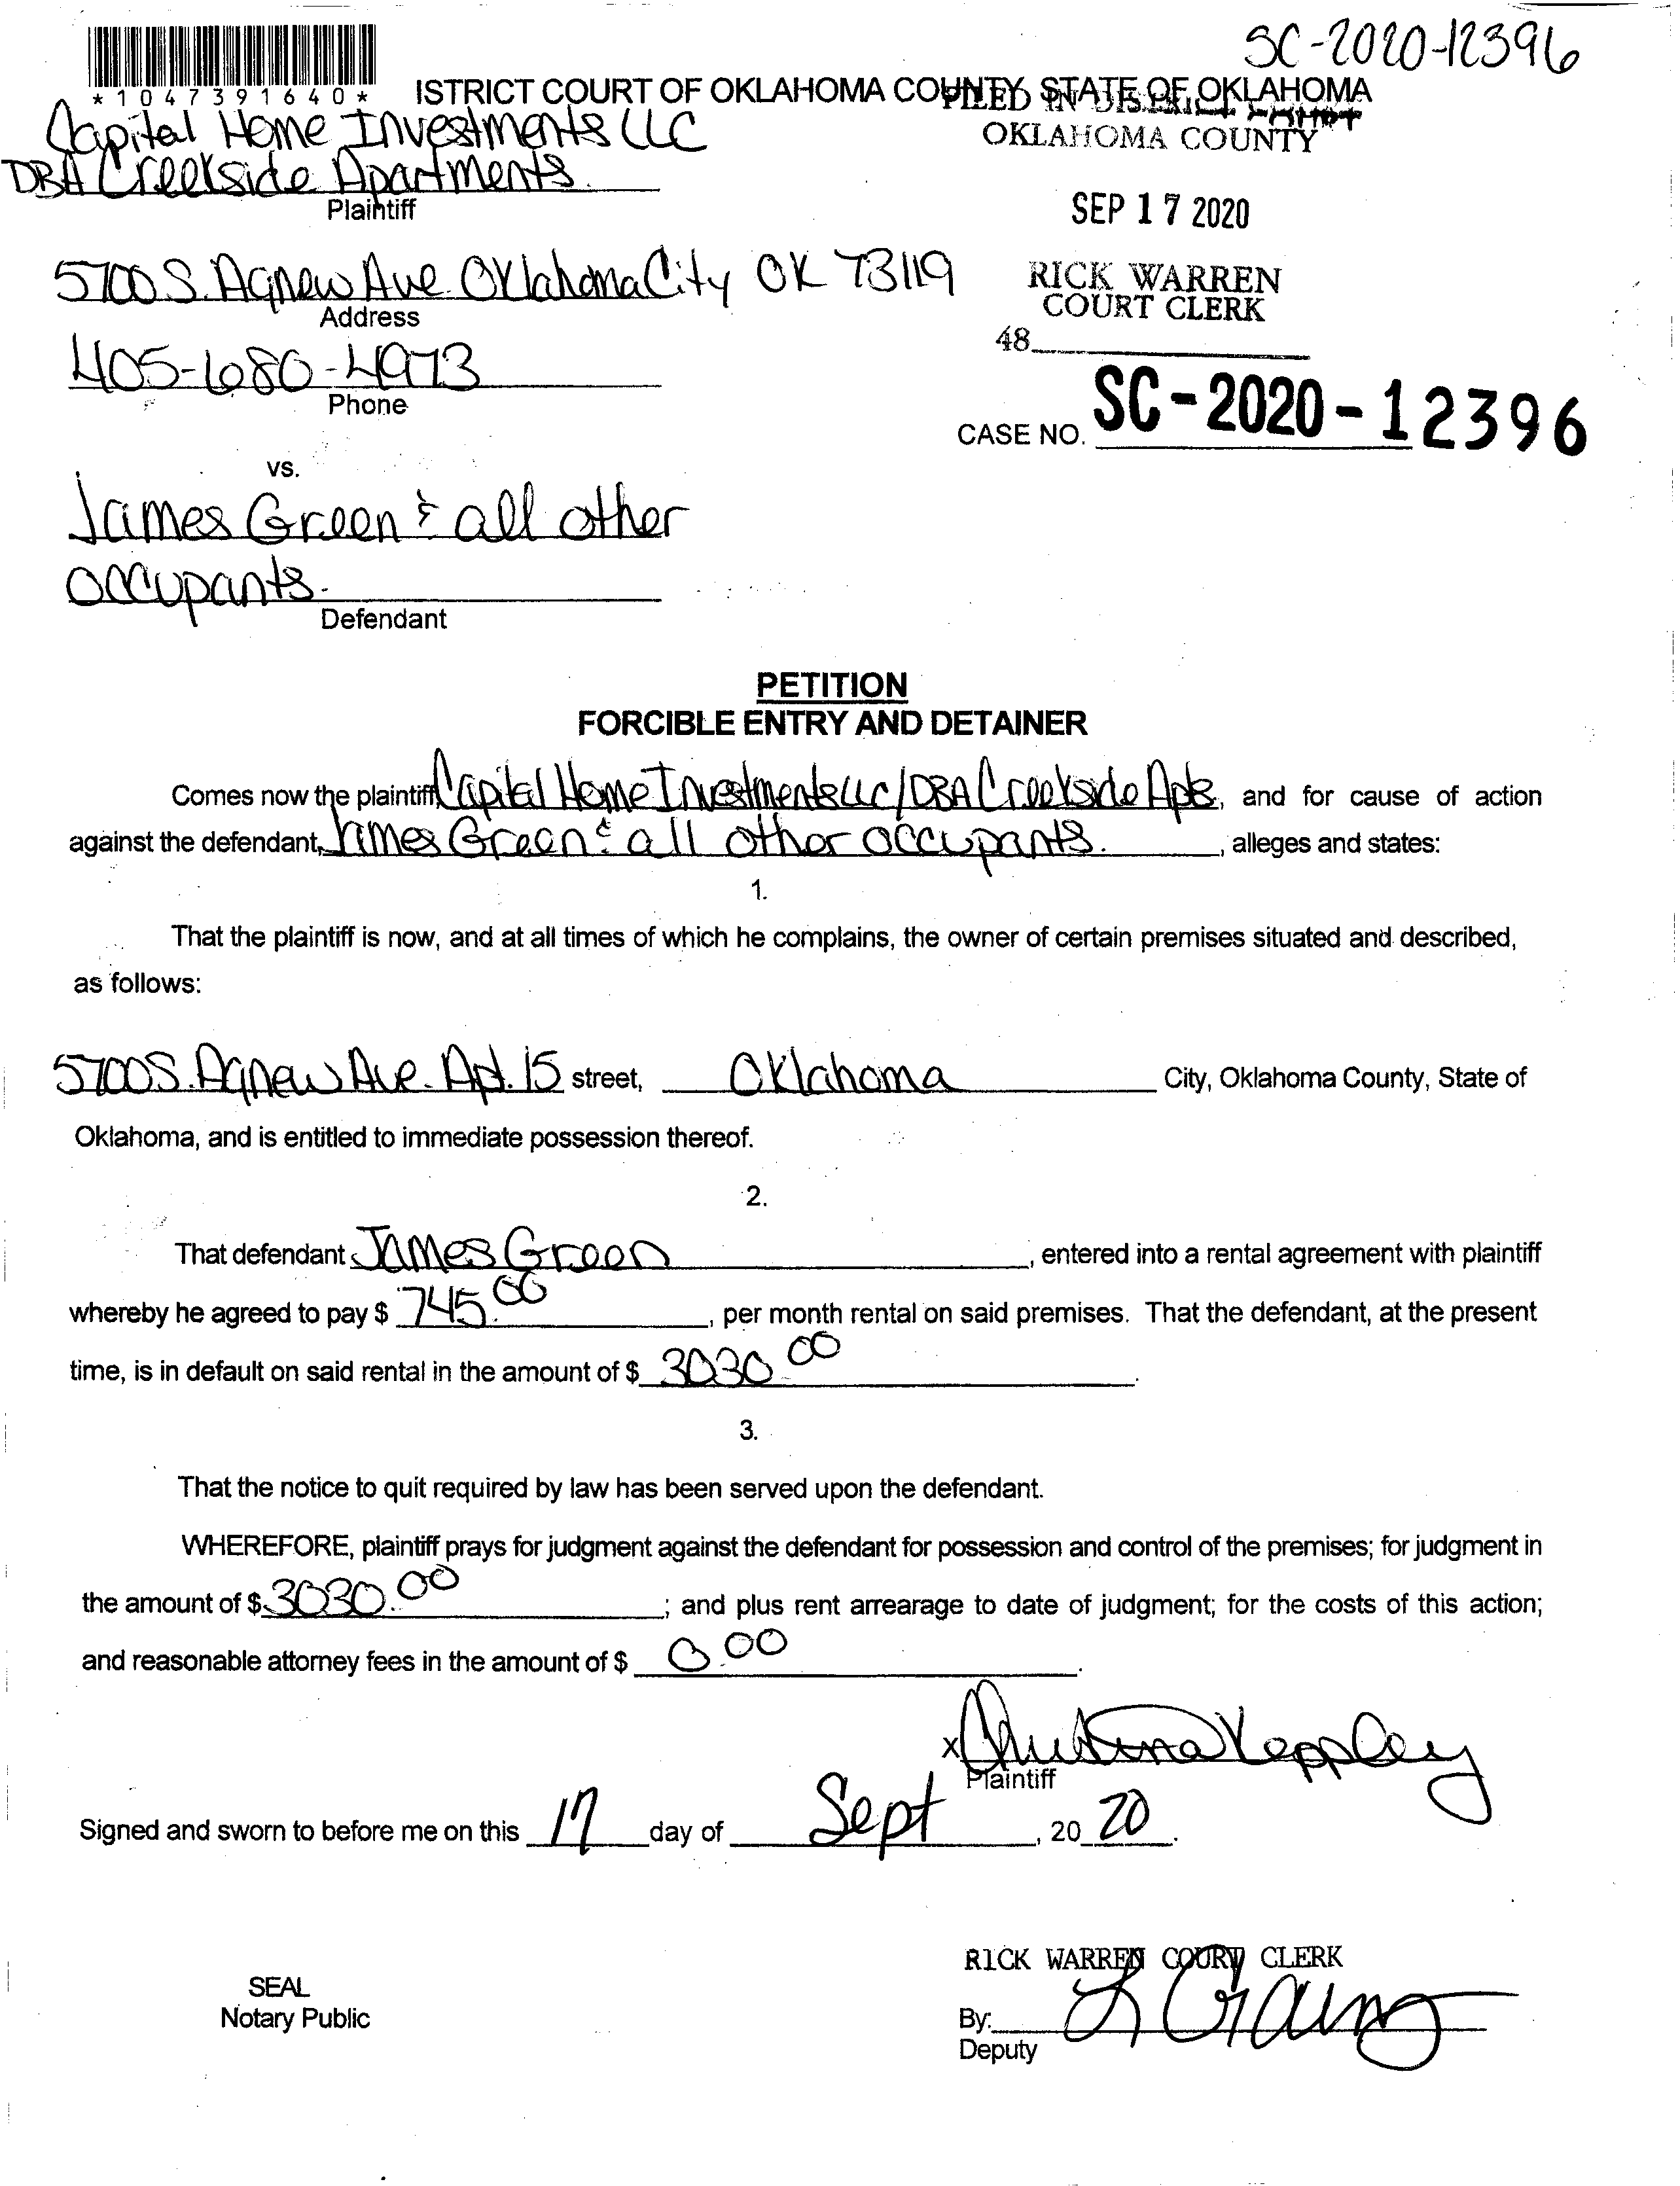 SC-2020-12396
*1047391640*
ISTRICT COURT OF OKLAHOMA COUNTY, STATE OF OKLAHOMA
FILED IN DISTRICT COURT
OKLAHOMA COUNTY
Capital Home Investments LLC
DBA Creekside Apartments
Plaintiff
SEP 17 2020
5700 S. Agnew Ave. Oklahoma City OK 73119
Address
RICK WARREN
COURT CLERK
48
405-680-4973
Phone
CASE NO. SC-2020-12396
vs.
James Green & all other
occupants.
Defendant
PETITION
FORCIBLE ENTRY AND DETAINER
Comes now the plaintiff Capital Home Investments LLC/DBA Creekside Apts, and for cause of action
against the defendant, James Green & all other occupants. , alleges and states:
1.
That the plaintiff is now, and at all times of which he complains, the owner of certain premises situated and described,
as follows:
5700 S. Agnew Ave. Apt. 15 street, Oklahoma City, Oklahoma County, State of
Oklahoma, and is entitled to immediate possession thereof.
2.
That defendant James Green , entered into a rental agreement with plaintiff
whereby he agreed to pay $ 745.00 , per month rental on said premises. That the defendant, at the present
time, is in default on said rental in the amount of $ 3030.00 .
3.
That the notice to quit required by law has been served upon the defendant.
WHEREFORE, plaintiff prays for judgment against the defendant for possession and control of the premises; for judgment in
the amount of $ 3030.00 ; and plus rent arrearage to date of judgment; for the costs of this action;
and reasonable attorney fees in the amount of $ 0.00 .
x Christina Keppley
Plaintiff
Signed and sworn to before me on this 17 day of Sept , 20 20 .
RICK WARREN COURT CLERK
SEAL
Notary Public
By:
Deputy